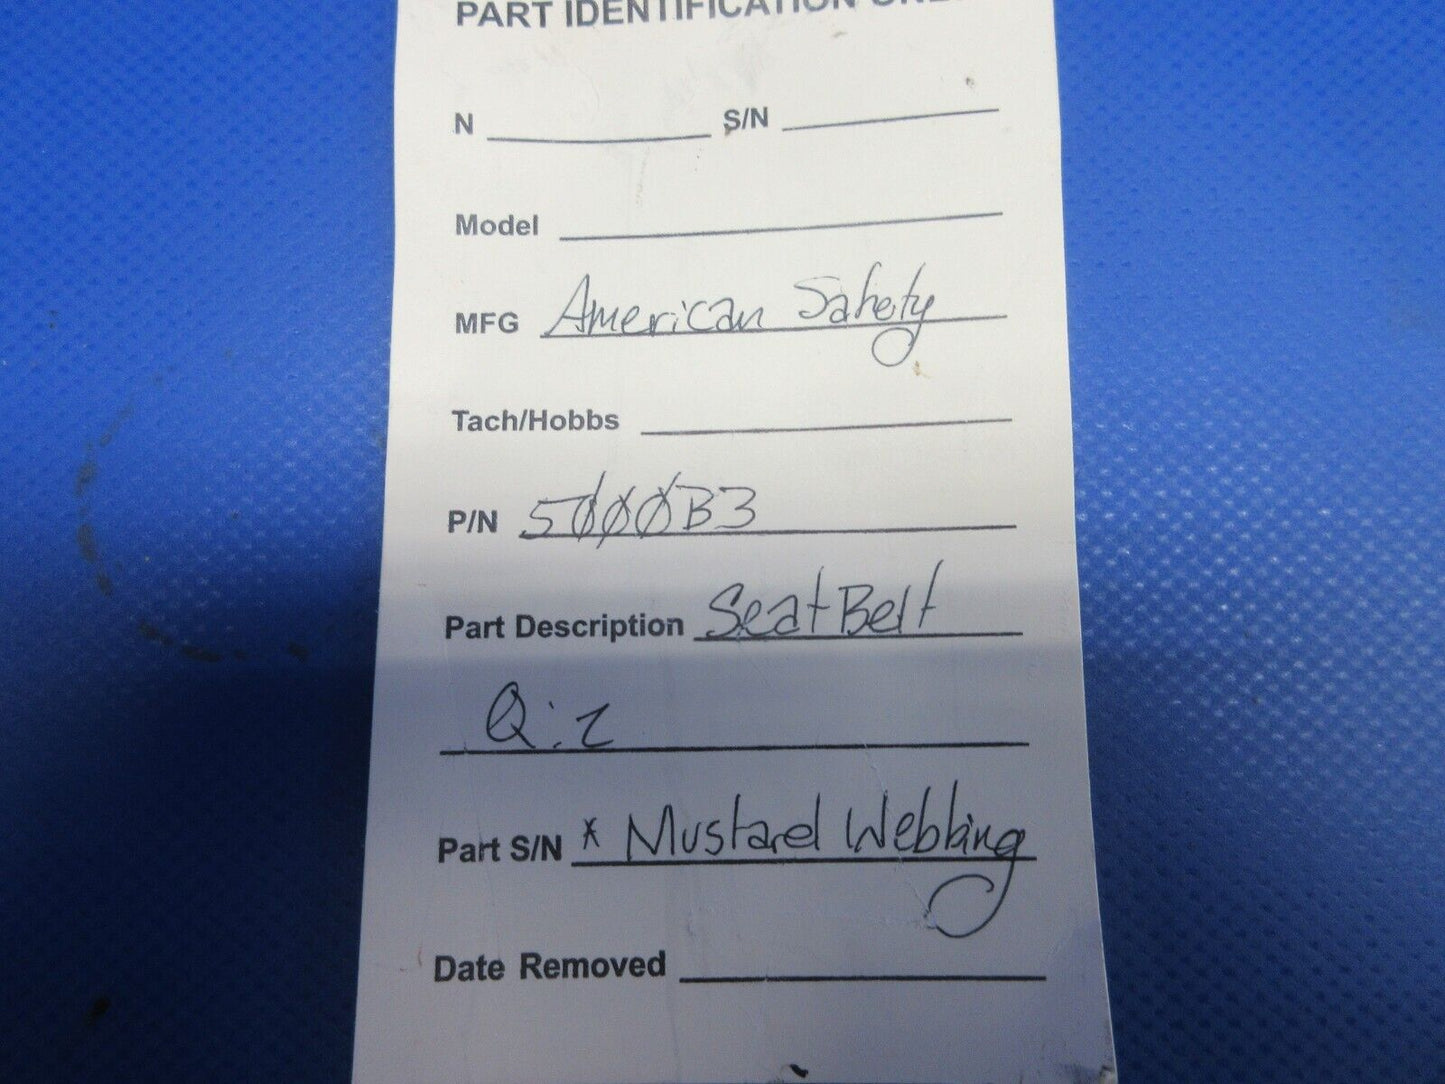 PART IDENTIFICATION ONLY
N S/N
Model
MFG American Safety
Tach/Hobbs
P/N 5000B3
Part Description Seat Belt
Q:2
Part S/N * Mustard Webbing
Date Removed